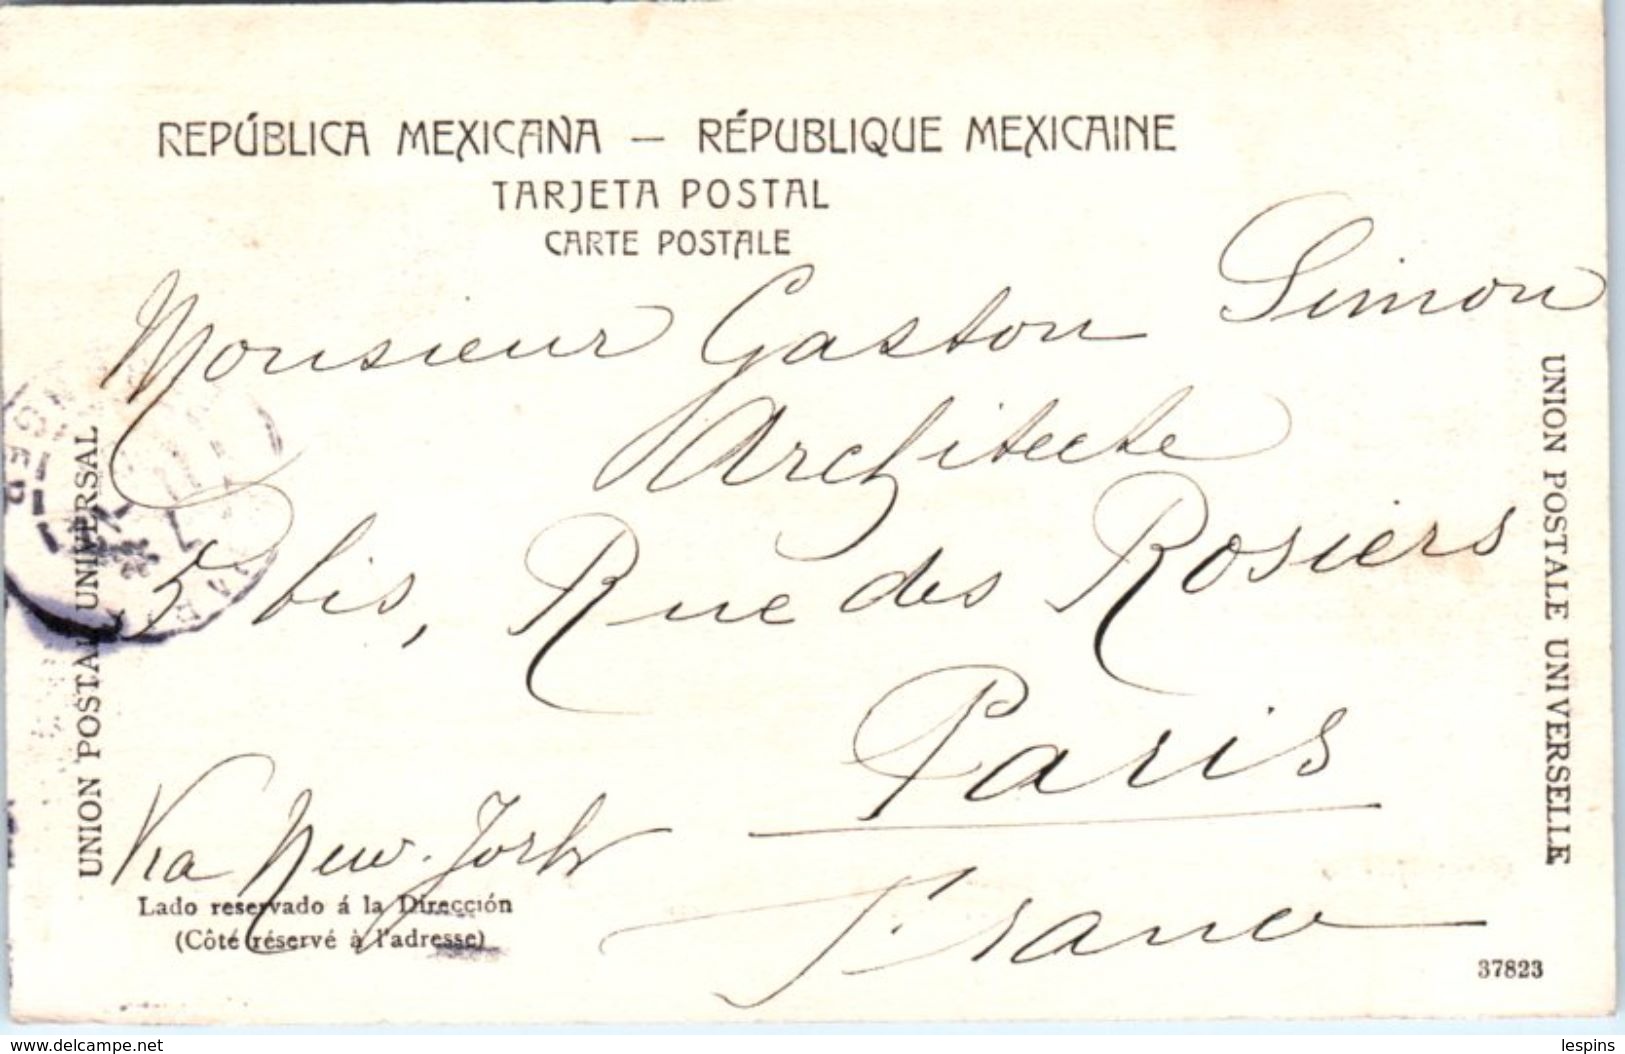 REPÚBLICA MEXICANA — RÉPUBLIQUE MEXICAINE
TARJETA POSTAL
CARTE POSTALE
Monsieur Gaston Simon
Architecte
5 bis, Rue des Rosiers
Paris
France
Via New-York
Lado reservado á la Dirección
(Côté réservé à l'adresse)
UNION POSTAL UNIVERSAL
UNION POSTALE UNIVERSELLE
37823
www.delcampe.net
lespins